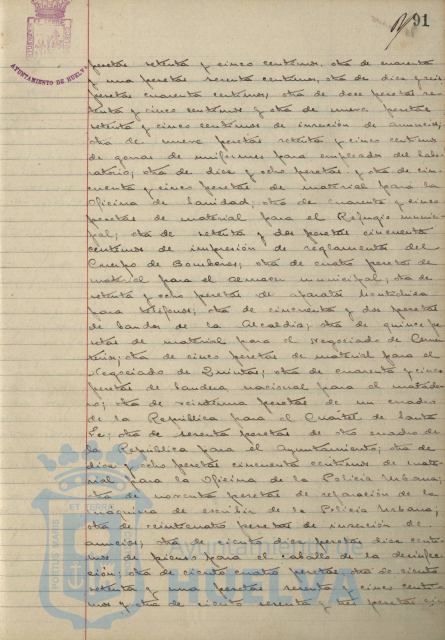 91
AYUNTAMIENTO DE HUELVA
pesetas setenta y cinco centimos, otra de cuarenta
y una pesetas sesenta centimos, otra de diez y seis
pesetas cuarenta centimos, otra de doce pesetas se-
tenta y cinco centimos y otra de nueve pesetas
setenta y cinco centimos de inserción de anuncios;
otra de nueve pesetas setenta y cinco centimos
de gorras de uniformes para empleados del labo-
ratorio; otra de diez y ocho pesetas y otra de cin-
cuenta y cinco pesetas de material para la
Oficina de Sanidad; otra de cuarenta y cinco
pesetas de material para el Refugio munici-
pal; otra de setenta y dos pesetas cincuenta
centimos de impresión de reglamentos del
Cuerpo de Bomberos; otra de cuatro pesetas de
material para el Almacen municipal; otra de
setenta y ocho pesetas de aparatos
para teléfonos; otra de cincuenta y dos pesetas
de bandos de la Alcaldia; otra de quince pe-
setas de material para el Negociado de Cemen-
terios; otra de cinco pesetas de material para el
Negociado de Quintas; otra de cuarenta y cinco
pesetas de bandera nacional para el matade-
ro; otra de veintiuna pesetas de un cuadro
de la República para el Cuartel de Santa
Fe; otra de sesenta pesetas de otro cuadro de
la República para el Ayuntamiento; otra de
diez y ocho pesetas cincuenta centimos de mate-
rial para la Oficina de la Policia Urbana;
otra de noventa pesetas de reparación de la
máquina de escribir de la Policia Urbana;
otra de veinticuatro pesetas de inserción de
anuncios; otra de ciento diez pesetas diez centi-
mos de pienso para el caballo de la desinfec-
ción; otra de ciento cuatro pesetas, otra de ciento
setenta y una pesetas sesenta y cinco centi-
mos y otra de ciento sesenta y tres pesetas
PORTUS MARIS ET TERRÆ CUSTODIA
Ayuntamiento de
HUELVA